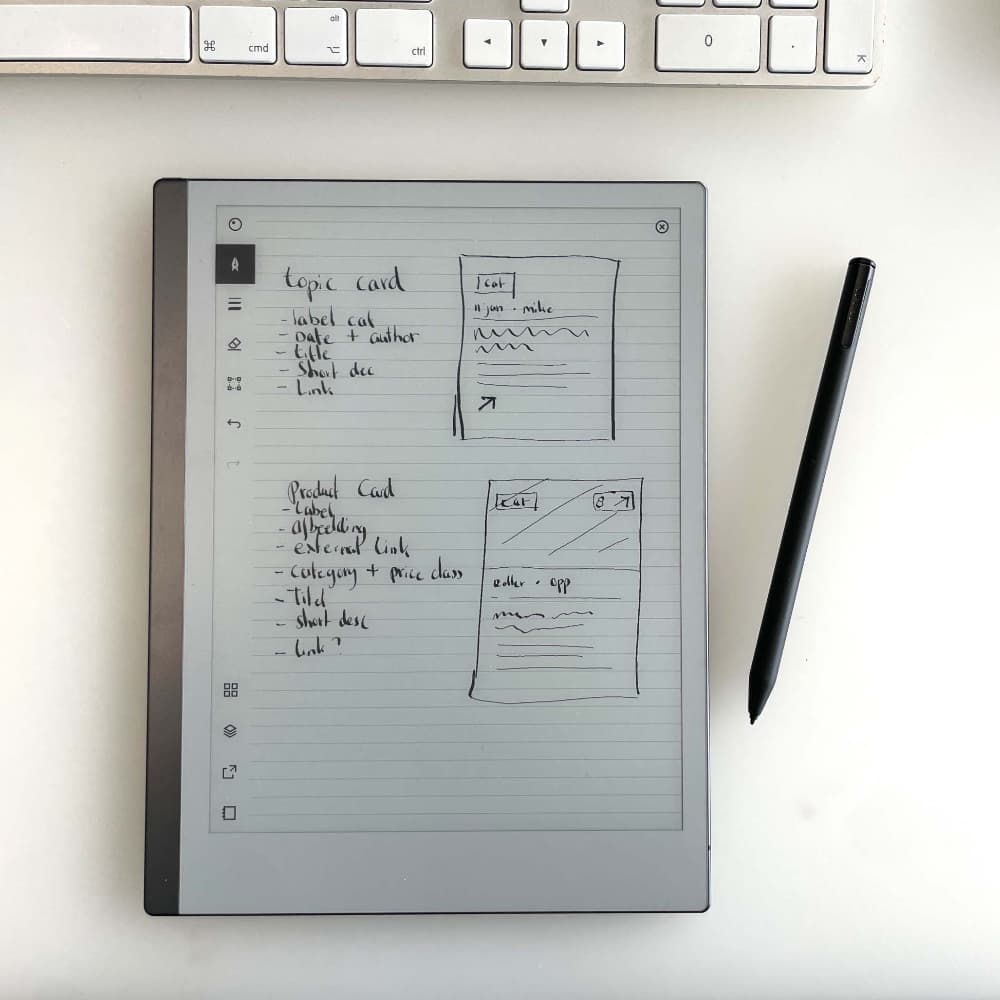 alt
cmd
ctrl
0
.
topic card
- label cat
- Date + author
- title
- Short dec
- Link
cat
11 jan · mike
Product Card
- Label
- afbeelding
- external link
- category + price class
- Titel
- short desc
- link?
cat
· app